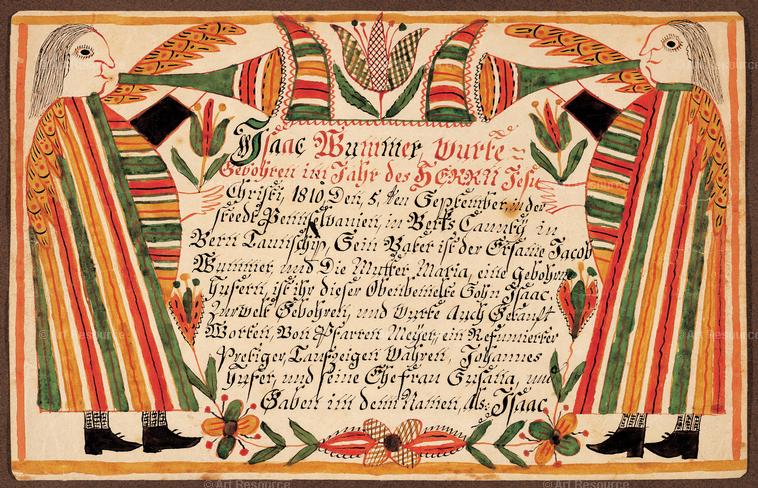 Isaac Wummer, Wurte=
Gebohren im Jahr des HERRN Jesu
Christi, 1810, Den, 5, ten September, in der
streedt Pennselvanien, in Berks Caunty, in
Bern Taunschip, Sein Vater ist der Ersame Jacob
Wummer, und Die Mutter, Maria, eine Gebohrne
Hufern, ist ihr dieser Obenbemelte Sohn, Isaac,
Zur welt Gebohren, und wurte Auch Getauft
Worten, Von Pfarren Meyer, ein Reformierter
Prediger, Taufzeigen Wahren, Johannes
Hufer, und seine Ehefrau Susana, und
Gaben im denn Namen, als: Isaac
© Art Resource